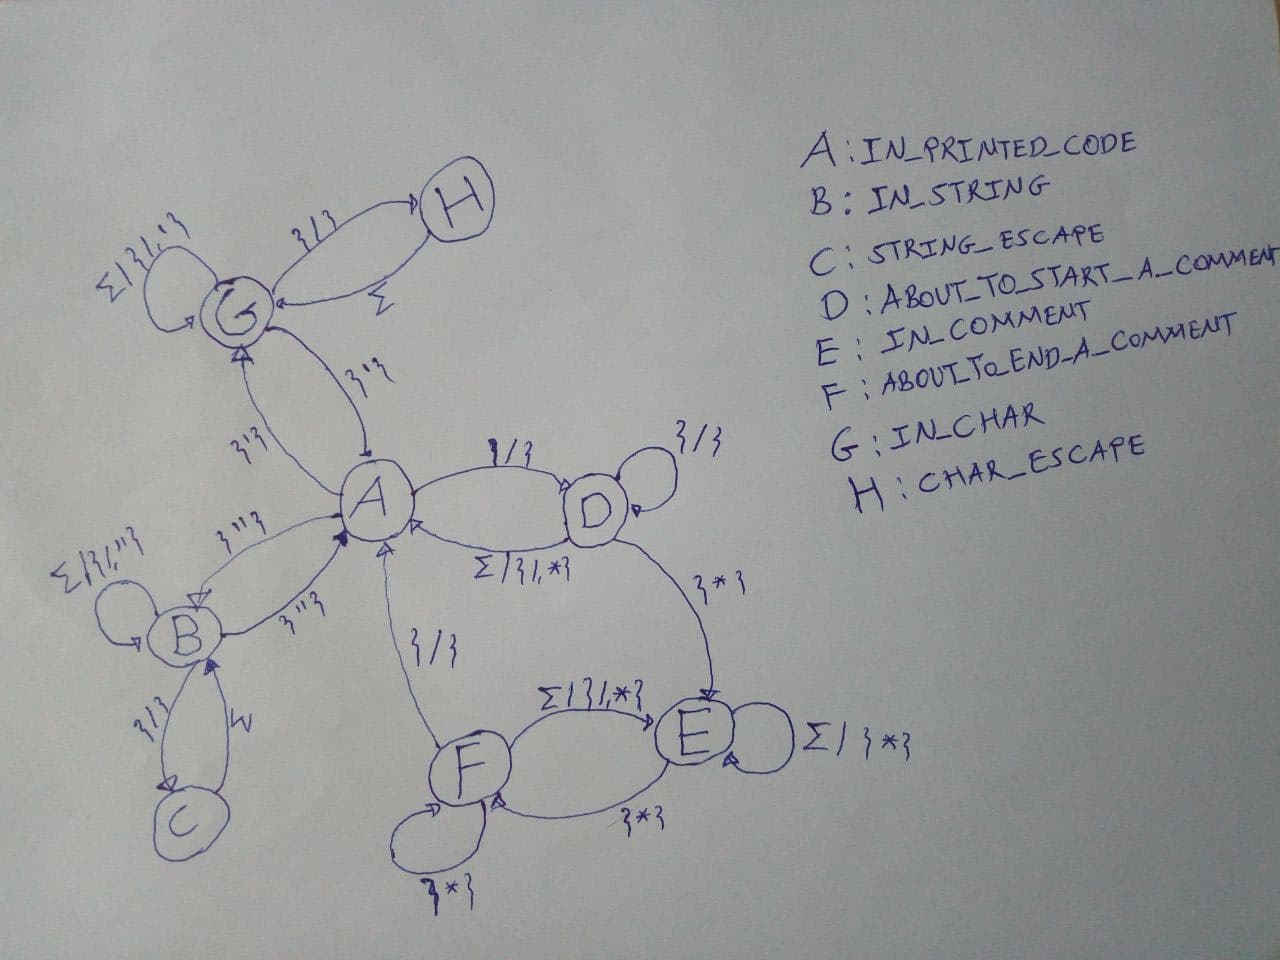 A : IN_PRINTED_CODE
B : IN_STRING
C : STRING_ESCAPE
D : ABOUT_TO_START_A_COMMENT
E : IN_COMMENT
F : ABOUT_TO_END_A_COMMENT
G : IN_CHAR
H : CHAR_ESCAPE
H
{/}
Σ/{/,'}
Σ
G
{'}
{'}
{/}
{/}
A
D
{"}
Σ/{/,*}
Σ/{/,"}
{*}
{"}
B
{/}
Σ/{/,*}
{/}
Σ
E
Σ/{*}
F
C
{*}
{*}